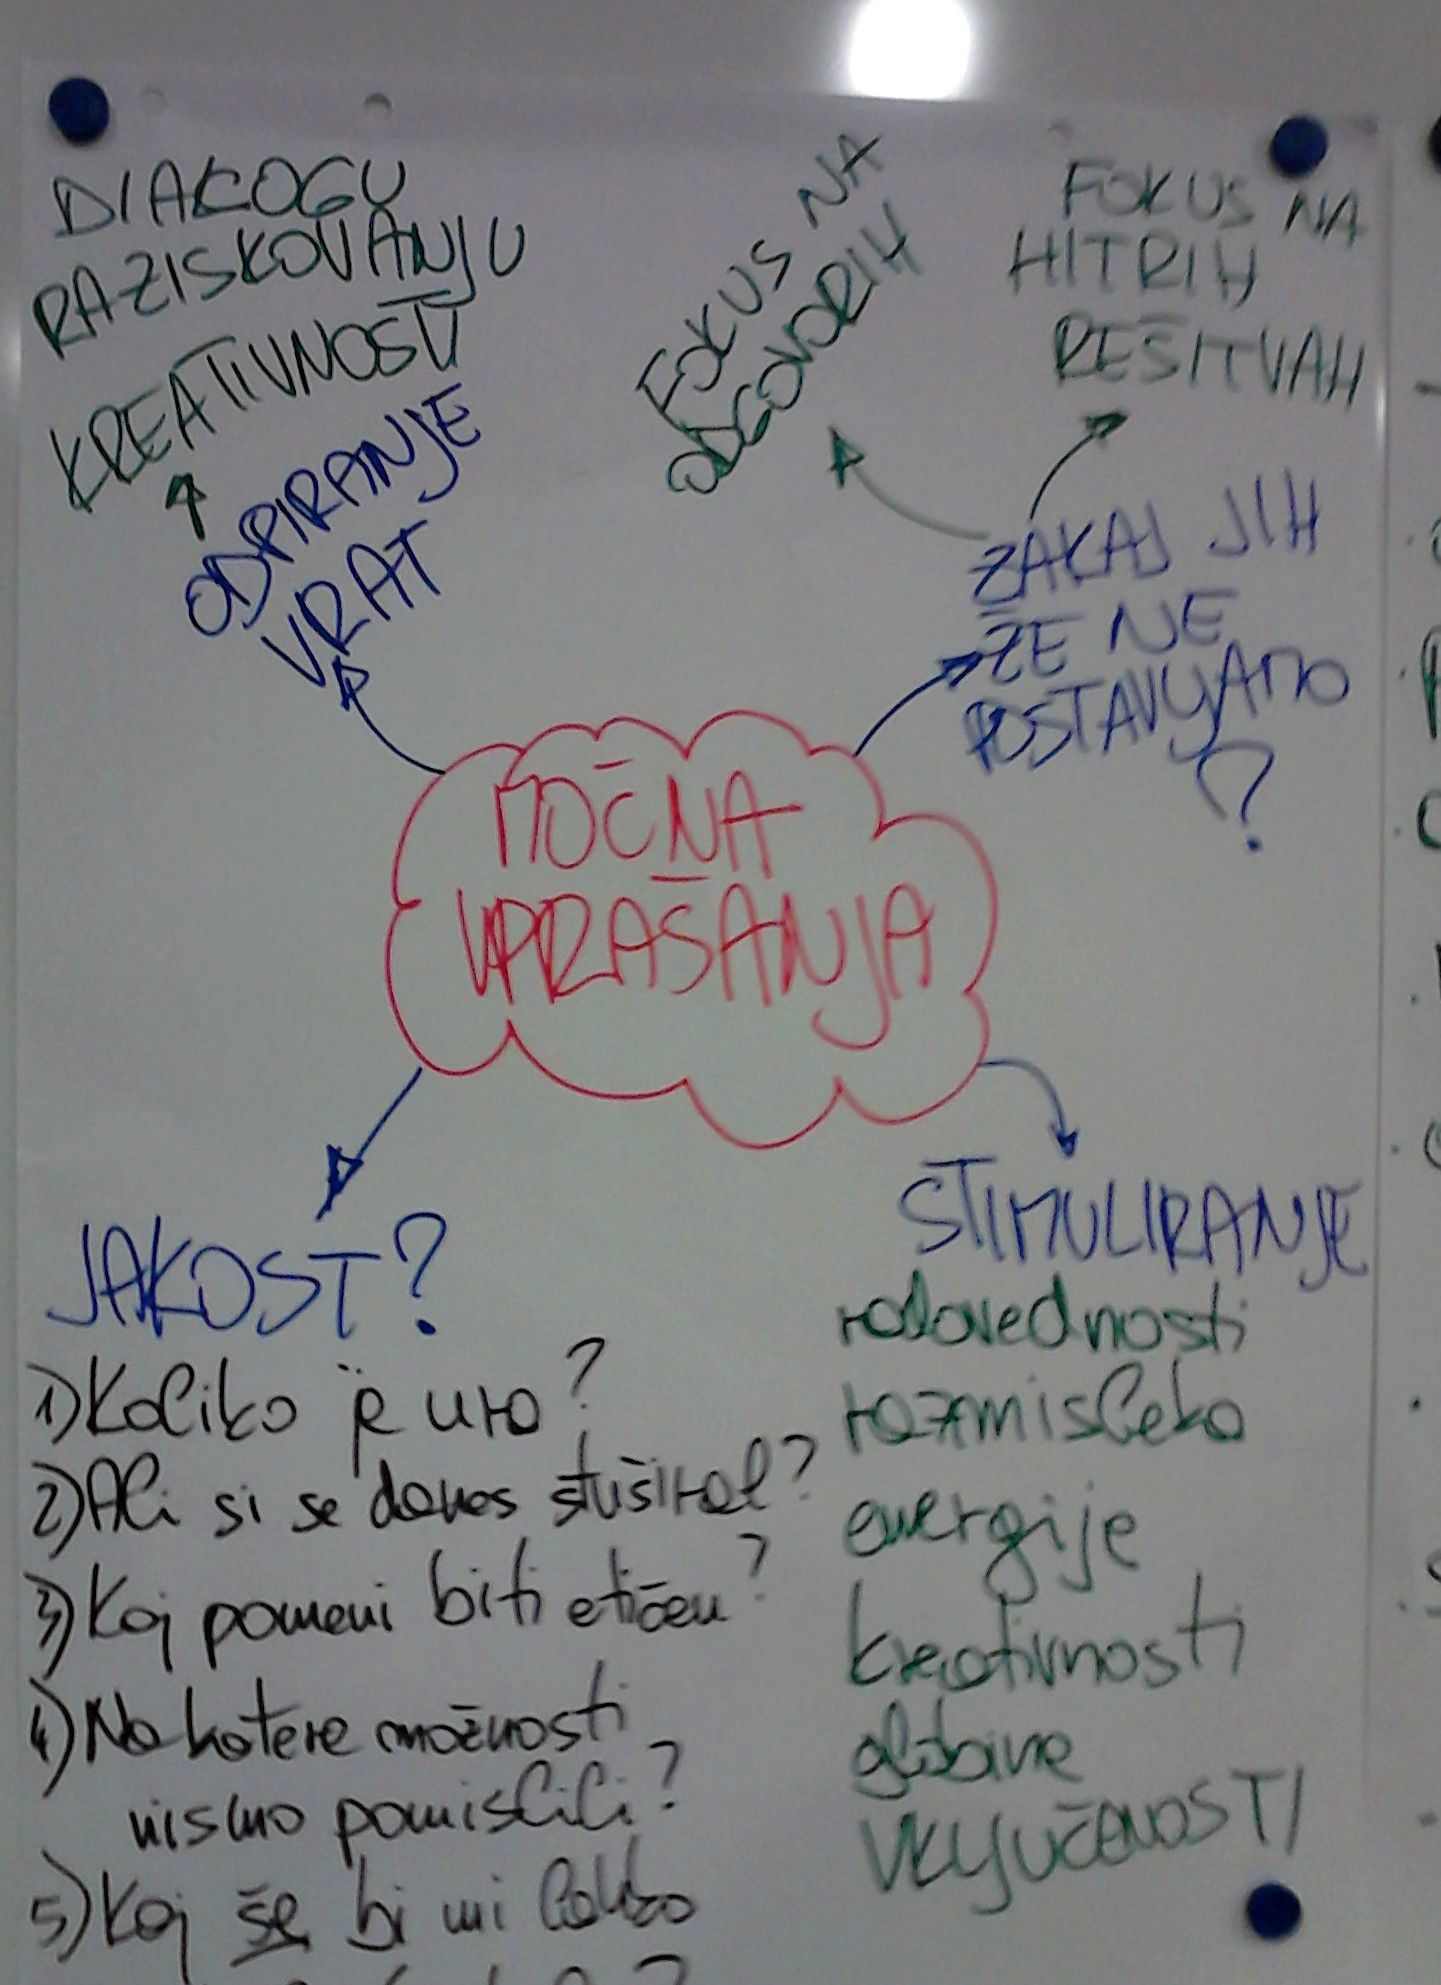 DIALOGU
RAZISKOVANJU
KREATIVNOSTI
ODPIRANJE
VRAT
FOKUS NA
ODGOVORIH
FOKUS NA
HITRIH
REŠITVAH
ZAKAJ JIH
ŽE NE
POSTAVLJAMO
?
MOČNA
VPRAŠANJA
JAKOST?
1) Koliko je ura?
2) Ali si se danes stuširal?
3) Kaj pomeni biti etičen?
4) Na katere možnosti
nismo pomislili?
5) Kaj še bi mi lahko
STIMULIRANJE
radovednosti
razmisleka
energije
kreativnosti
globine
VKLJUČENOSTI